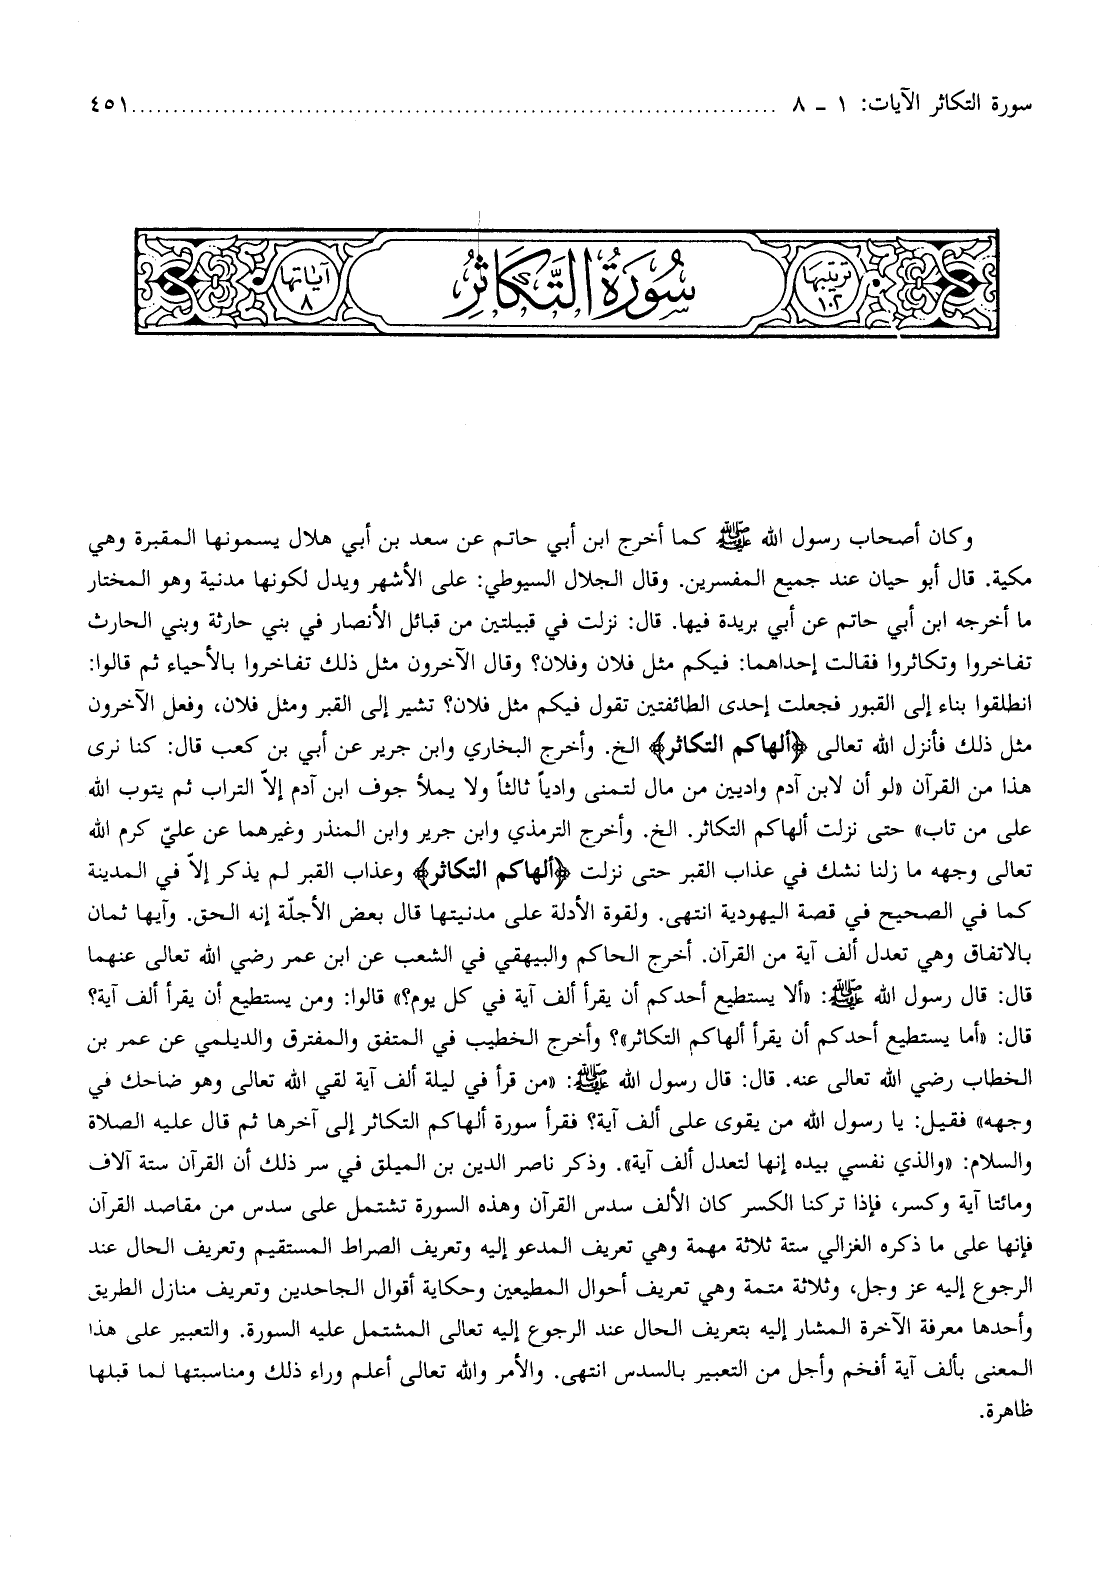 سورة التكاثر الآيات: ١ ـ ٨ ........................................................................... ٤٥١
ترتيبها ١٠٢ سُورَةُ التَّكَاثُرِ آياتها ٨
وكان أصحاب رسول الله ﷺ كما أخرج ابن أبي حاتم عن سعد بن أبي هلال يسمونها المقبرة وهي
مكية. قال أبو حيان عند جميع المفسرين. وقال الجلال السيوطي: على الأشهر ويدل لكونها مدنية وهو المختار
ما أخرجه ابن أبي حاتم عن أبي بريدة فيها. قال: نزلت في قبيلتين من قبائل الأنصار في بني حارثة وبني الحارث
تفاخروا وتكاثروا فقالت إحداهما: فيكم مثل فلان وفلان؟ وقال الآخرون مثل ذلك تفاخروا بالأحياء ثم قالوا:
انطلقوا بناء إلى القبور فجعلت إحدى الطائفتين تقول فيكم مثل فلان؟ تشير إلى القبر ومثل فلان، وفعل الآخرون
مثل ذلك فأنزل الله تعالى ﴿ألهاكم التكاثر﴾ الخ. وأخرج البخاري وابن جرير عن أبي بن كعب قال: كنا نرى
هذا من القرآن «لو أن لابن آدم واديين من مال لتمنى وادياً ثالثاً ولا يملأ جوف ابن آدم إلاّ التراب ثم يتوب الله
على من تاب» حتى نزلت ألهاكم التكاثر. الخ. وأخرج الترمذي وابن جرير وابن المنذر وغيرهما عن عليّ كرم الله
تعالى وجهه ما زلنا نشك في عذاب القبر حتى نزلت ﴿ألهاكم التكاثر﴾ وعذاب القبر لم يذكر إلاّ في المدينة
كما في الصحيح في قصة اليهودية انتهى. ولقوة الأدلة على مدنيتها قال بعض الأجلّة إنه الحق. وآيها ثمان
بالاتفاق وهي تعدل ألف آية من القرآن. أخرج الحاكم والبيهقي في الشعب عن ابن عمر رضي الله تعالى عنهما
قال: قال رسول الله ﷺ: «ألا يستطيع أحدكم أن يقرأ ألف آية في كل يوم؟» قالوا: ومن يستطيع أن يقرأ ألف آية؟
قال: «أما يستطيع أحدكم أن يقرأ ألهاكم التكاثر»؟ وأخرج الخطيب في المتفق والمفترق والديلمي عن عمر بن
الخطاب رضي الله تعالى عنه. قال: قال رسول الله ﷺ: «من قرأ في ليلة ألف آية لقي الله تعالى وهو ضاحك في
وجهه» فقيل: يا رسول الله من يقوى على ألف آية؟ فقرأ سورة ألهاكم التكاثر إلى آخرها ثم قال عليه الصلاة
والسلام: «والذي نفسي بيده إنها لتعدل ألف آية». وذكر ناصر الدين بن الميلق في سر ذلك أن القرآن ستة آلاف
ومائتا آية وكسر، فإذا تركنا الكسر كان الألف سدس القرآن وهذه السورة تشتمل على سدس من مقاصد القرآن
فإنها على ما ذكره الغزالي ستة ثلاثة مهمة وهي تعريف المدعو إليه وتعريف الصراط المستقيم وتعريف الحال عند
الرجوع إليه عز وجل، وثلاثة متمة وهي تعريف أحوال المطيعين وحكاية أقوال الجاحدين وتعريف منازل الطريق
وأحدها معرفة الآخرة المشار إليه بتعريف الحال عند الرجوع إليه تعالى المشتمل عليه السورة. والتعبير على هذا
المعنى بألف آية أفخم وأجل من التعبير بالسدس انتهى. والأمر والله تعالى أعلم وراء ذلك ومناسبتها لما قبلها
ظاهرة.